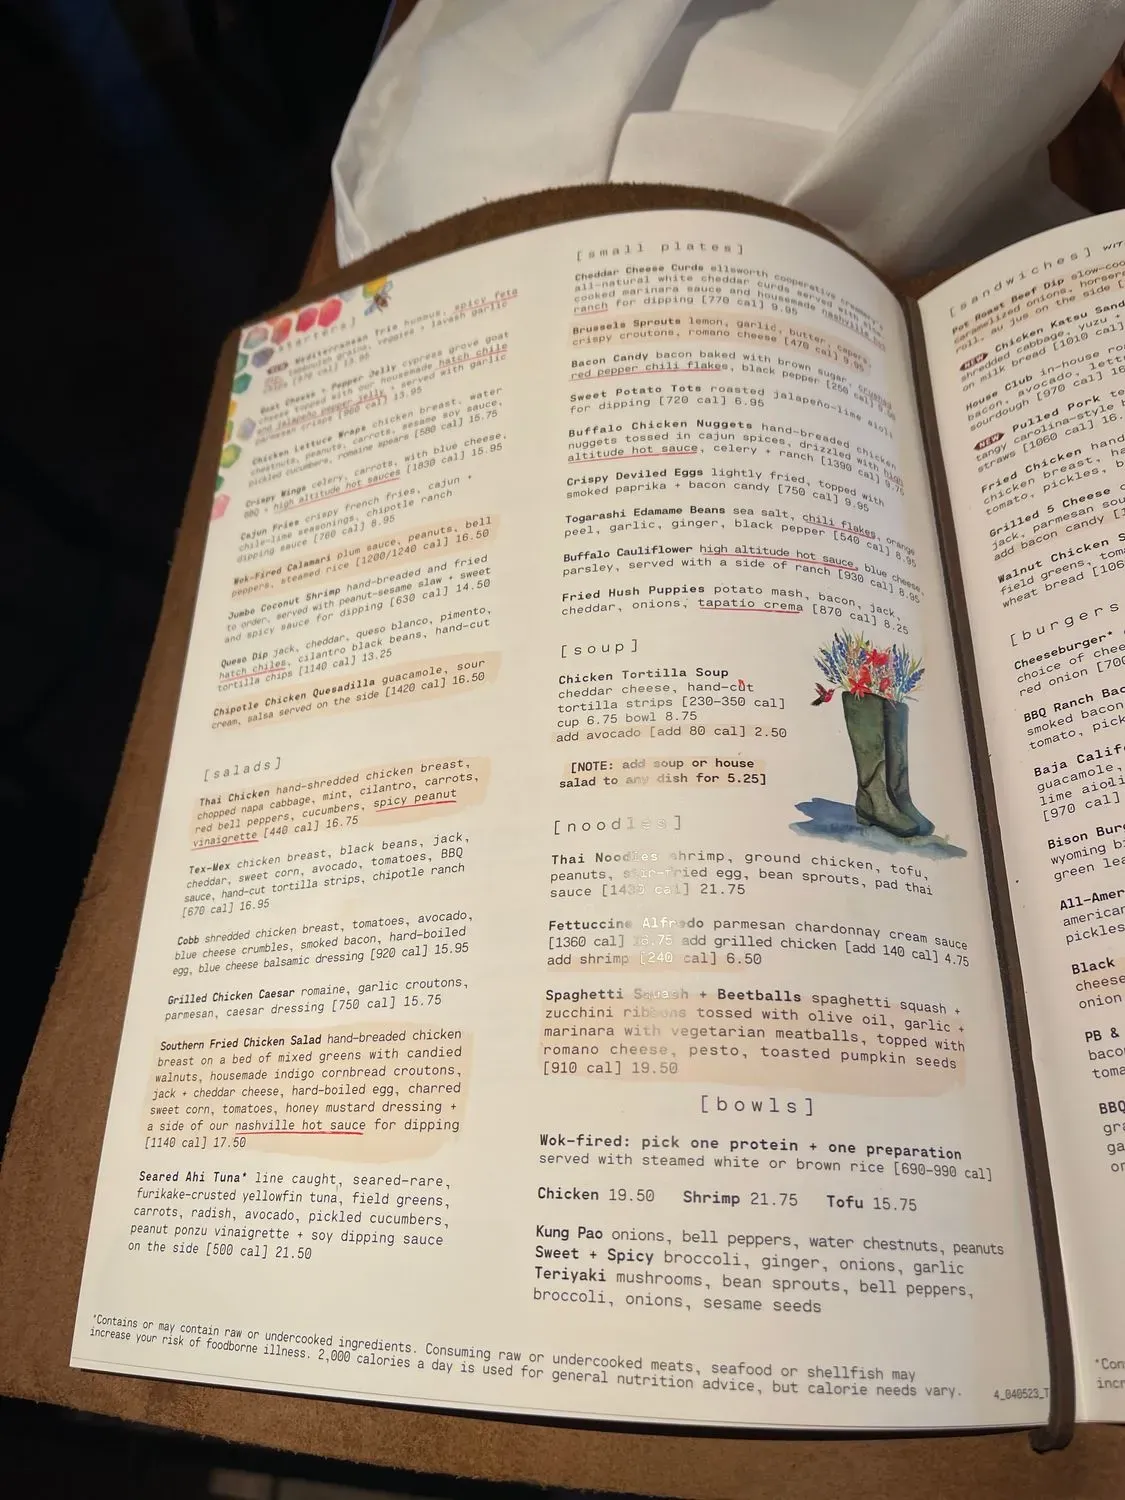 [starters]
NEW Mediterranean Trio hummus, spicy feta
tabbouleh grains, veggies + lavash garlic
chips [970 cal] 13.95
Goat Cheese + Pepper Jelly cypress grove goat
cheese topped with our housemade hatch chile
and jalapeño pepper jelly, served with garlic
parmesan crisps [980 cal] 13.95
Chicken Lettuce Wraps chicken breast, water
chestnuts, peanuts, carrots, sesame soy sauce,
pickled cucumbers, romaine spears [580 cal] 15.75
Crispy Wings celery, carrots, with blue cheese,
BBQ + high altitude hot sauces [1830 cal] 15.95
Cajun Fries crispy french fries, cajun +
chile-lime seasonings, chipotle ranch
dipping sauce [780 cal] 8.95
Wok-Fired Calamari plum sauce, peanuts, bell
peppers, steamed rice [1200/1240 cal] 16.50
Jumbo Coconut Shrimp hand-breaded and fried
to order, served with peanut-sesame slaw + sweet
and spicy sauce for dipping [630 cal] 14.50
Queso Dip jack, cheddar, queso blanco, pimento,
hatch chiles, cilantro black beans, hand-cut
tortilla chips [1140 cal] 13.25
Chipotle Chicken Quesadilla guacamole, sour
cream, salsa served on the side [1420 cal] 16.50
[salads]
Thai Chicken hand-shredded chicken breast,
chopped napa cabbage, mint, cilantro, carrots,
red bell peppers, cucumbers, spicy peanut
vinaigrette [440 cal] 16.75
Tex-Mex chicken breast, black beans, jack,
cheddar, sweet corn, avocado, tomatoes, BBQ
sauce, hand-cut tortilla strips, chipotle ranch
[670 cal] 16.95
Cobb shredded chicken breast, tomatoes, avocado,
blue cheese crumbles, smoked bacon, hard-boiled
egg, blue cheese balsamic dressing [920 cal] 15.95
Grilled Chicken Caesar romaine, garlic croutons,
parmesan, caesar dressing [750 cal] 15.75
Southern Fried Chicken Salad hand-breaded chicken
breast on a bed of mixed greens with candied
walnuts, housemade indigo cornbread croutons,
jack + cheddar cheese, hard-boiled egg, charred
sweet corn, tomatoes, honey mustard dressing +
a side of our nashville hot sauce for dipping
[1140 cal] 17.50
Seared Ahi Tuna* line caught, seared-rare,
furikake-crusted yellowfin tuna, field greens,
carrots, radish, avocado, pickled cucumbers,
peanut ponzu vinaigrette + soy dipping sauce
on the side [500 cal] 21.50
[small plates]
Cheddar Cheese Curds ellsworth cooperative creamery's
all-natural white cheddar curds served with slow
cooked marinara sauce and housemade nashville hot
ranch for dipping [770 cal] 9.95
Brussels Sprouts lemon, garlic, butter, capers,
crispy croutons, romano cheese [470 cal] 9.95
Bacon Candy bacon baked with brown sugar, crushed
red pepper chili flakes, black pepper [250 cal]
Sweet Potato Tots roasted jalapeño-lime aioli
for dipping [720 cal] 6.95
Buffalo Chicken Nuggets hand-breaded chicken
nuggets tossed in cajun spices, drizzled with high
altitude hot sauce, celery + ranch [1390 cal] 9.75
Crispy Deviled Eggs lightly fried, topped with
smoked paprika + bacon candy [750 cal] 9.95
Togarashi Edamame Beans sea salt, chili flakes, orange
peel, garlic, ginger, black pepper [540 cal] 8.95
Buffalo Cauliflower high altitude hot sauce, blue cheese,
parsley, served with a side of ranch [930 cal] 8.95
Fried Hush Puppies potato mash, bacon, jack,
cheddar, onions, tapatio crema [870 cal] 8.25
[soup]
Chicken Tortilla Soup
cheddar cheese, hand-cut
tortilla strips [230-350 cal]
cup 6.75 bowl 8.75
add avocado [add 80 cal] 2.50
[NOTE: add soup or house
salad to any dish for 5.25]
[noodles]
Thai Noodles shrimp, ground chicken, tofu,
peanuts, stir-fried egg, bean sprouts, pad thai
sauce [1430 cal] 21.75
Fettuccine Alfredo parmesan chardonnay cream sauce
[1360 cal] 16.75 add grilled chicken [add 140 cal] 4.75
add shrimp [240 cal] 6.50
Spaghetti Squash + Beetballs spaghetti squash +
zucchini ribbons tossed with olive oil, garlic +
marinara with vegetarian meatballs, topped with
romano cheese, pesto, toasted pumpkin seeds
[910 cal] 19.50
[bowls]
Wok-fired: pick one protein + one preparation
served with steamed white or brown rice [690-990 cal]
Chicken 19.50 Shrimp 21.75 Tofu 15.75
Kung Pao onions, bell peppers, water chestnuts, peanuts
Sweet + Spicy broccoli, ginger, onions, garlic
Teriyaki mushrooms, bean sprouts, bell peppers,
broccoli, onions, sesame seeds
*Contains or may contain raw or undercooked ingredients. Consuming raw or undercooked meats, seafood or shellfish may
increase your risk of foodborne illness. 2,000 calories a day is used for general nutrition advice, but calorie needs vary.
4_040523_T
[sandwiches]
Pot Roast Beef Dip
caramelized onions,
roll, au jus on the side
NEW Chicken Katsu
shredded cabbage, yuzu +
on milk bread [1010 cal]
House Club in-house
bacon, avocado,
sourdough [970 cal]
NEW Pulled Pork
tangy carolina-style
straws [1060 cal]
Fried Chicken hand
chicken breast,
tomato, pickles,
Grilled 5 Cheese
jack, parmesan
add bacon candy
Walnut Chicken
field greens,
wheat bread
[burgers
Cheeseburger*
choice of
red onion
BBQ Ranch
smoked bacon
tomato,
Baja
guacamole,
lime aioli
[970 cal]
Bison
wyoming
green
american
pickles
Black
cheese
onion
PB &
BBQ